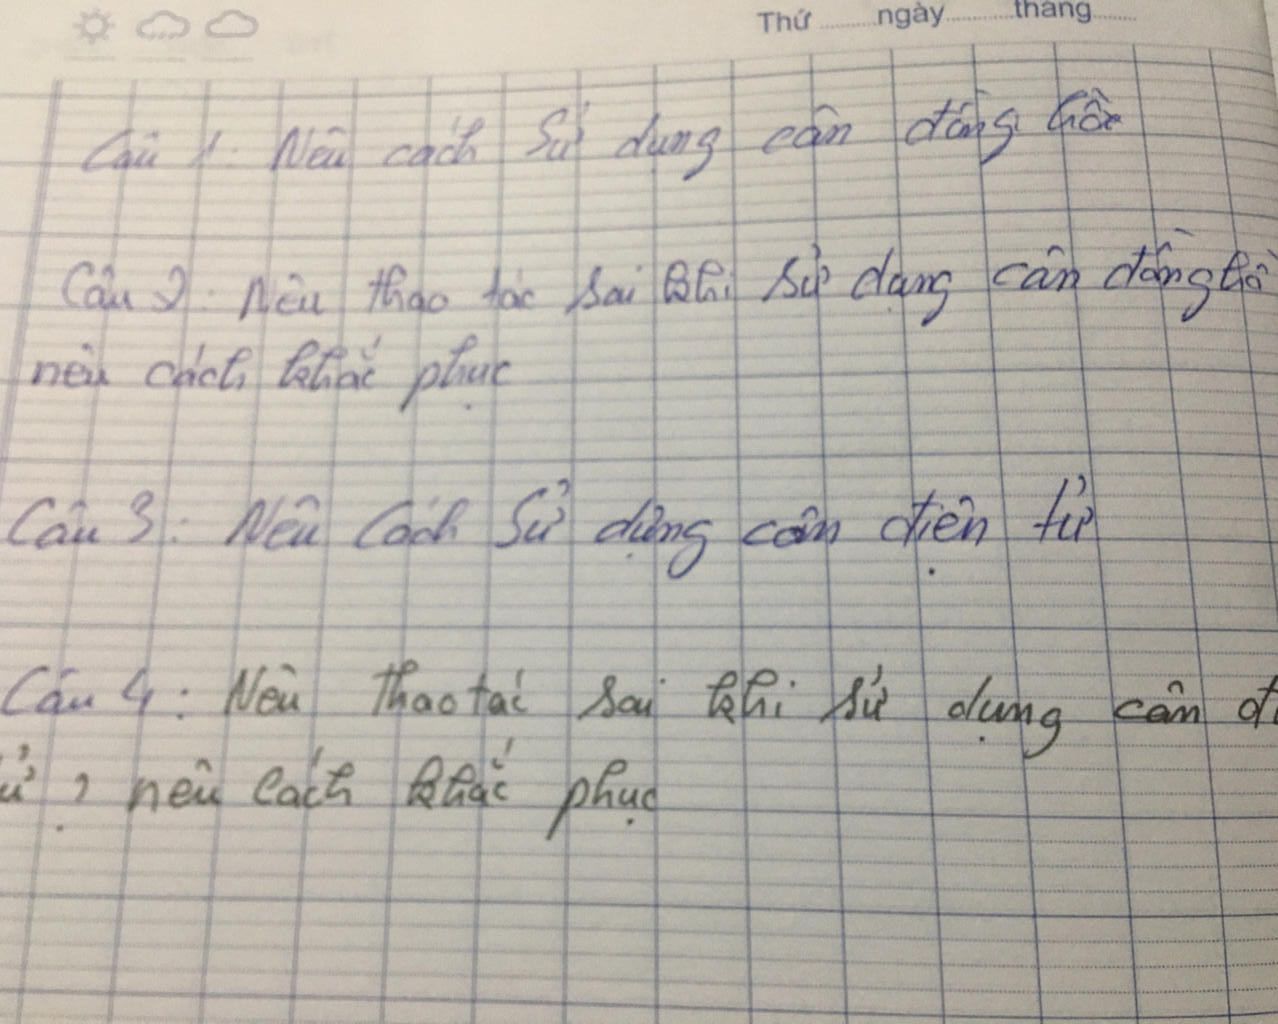 Thứ ........ ngày ........ tháng ........
Câu 1. Nêu cách sử dụng cân đồng hồ
Câu 2: Nêu thao tác sai khi sử dụng cân đồng hồ
nêu cách khắc phục
Câu 3: Nêu Cách Sử dụng cân điện tử
Câu 4: Nêu Thao tác sai khi sử dụng cân đi
ử, nêu cách khắc phục